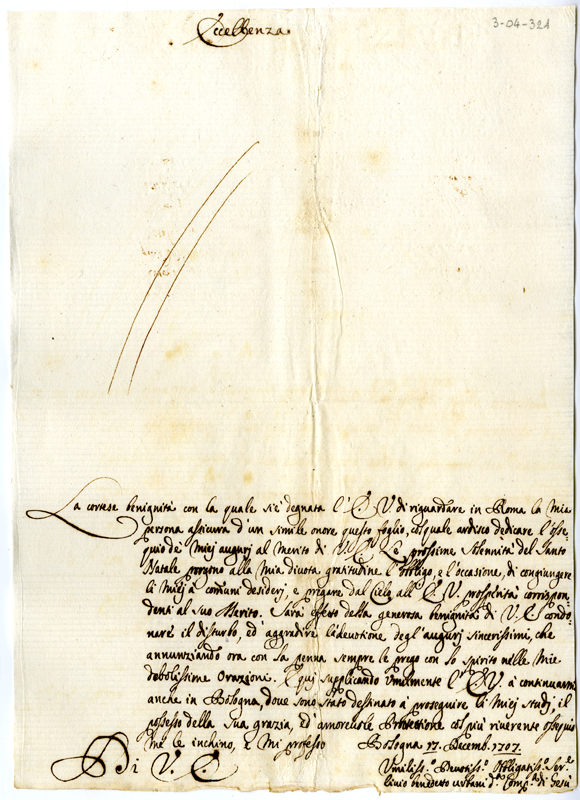 Eccellenza
3-04-321
La cortese benignità con la quale si è degnata l'E. V. di riguardare in Roma la Mia
persona assicura d'un simile onore questo foglio, col quale ardisco dedicare l'osse-
quio de' Miej augurj al Merito di V. E. Le prossime solennità del Santo
Natale porgono alla Mia divota gratitudine l'obligo, e l'occasione, di congiungere
li Miej a' comuni desiderj, e pregare dal Cielo all'E. V. prosperità corrispon-
denti al suo Merito. Sarà effetto della generosa benignità di V. E. condo-
nare il disturbo, ed aggradire la devotione degl'augurj sincerissimi, che
annunziando ora con la penna sempre le prego con lo spirito nelle Mie
debolissime Orazioni. E qui supplicando Umilmente l'E. V. à continuarmi
anche in Bologna, dove sono stato destinato a proseguire li Miej Studj, il
possesso della sua grazia, ed amorevole Protettione col più riverente ossequio
me le inchino, e Mi professo Bologna 17. Decemb. 1707.
Di V. E.
Umiliss.º Devotiss.º Obbligatiss.º Ser.re
Livio benedetto d.ª Comp.ª di Gesù